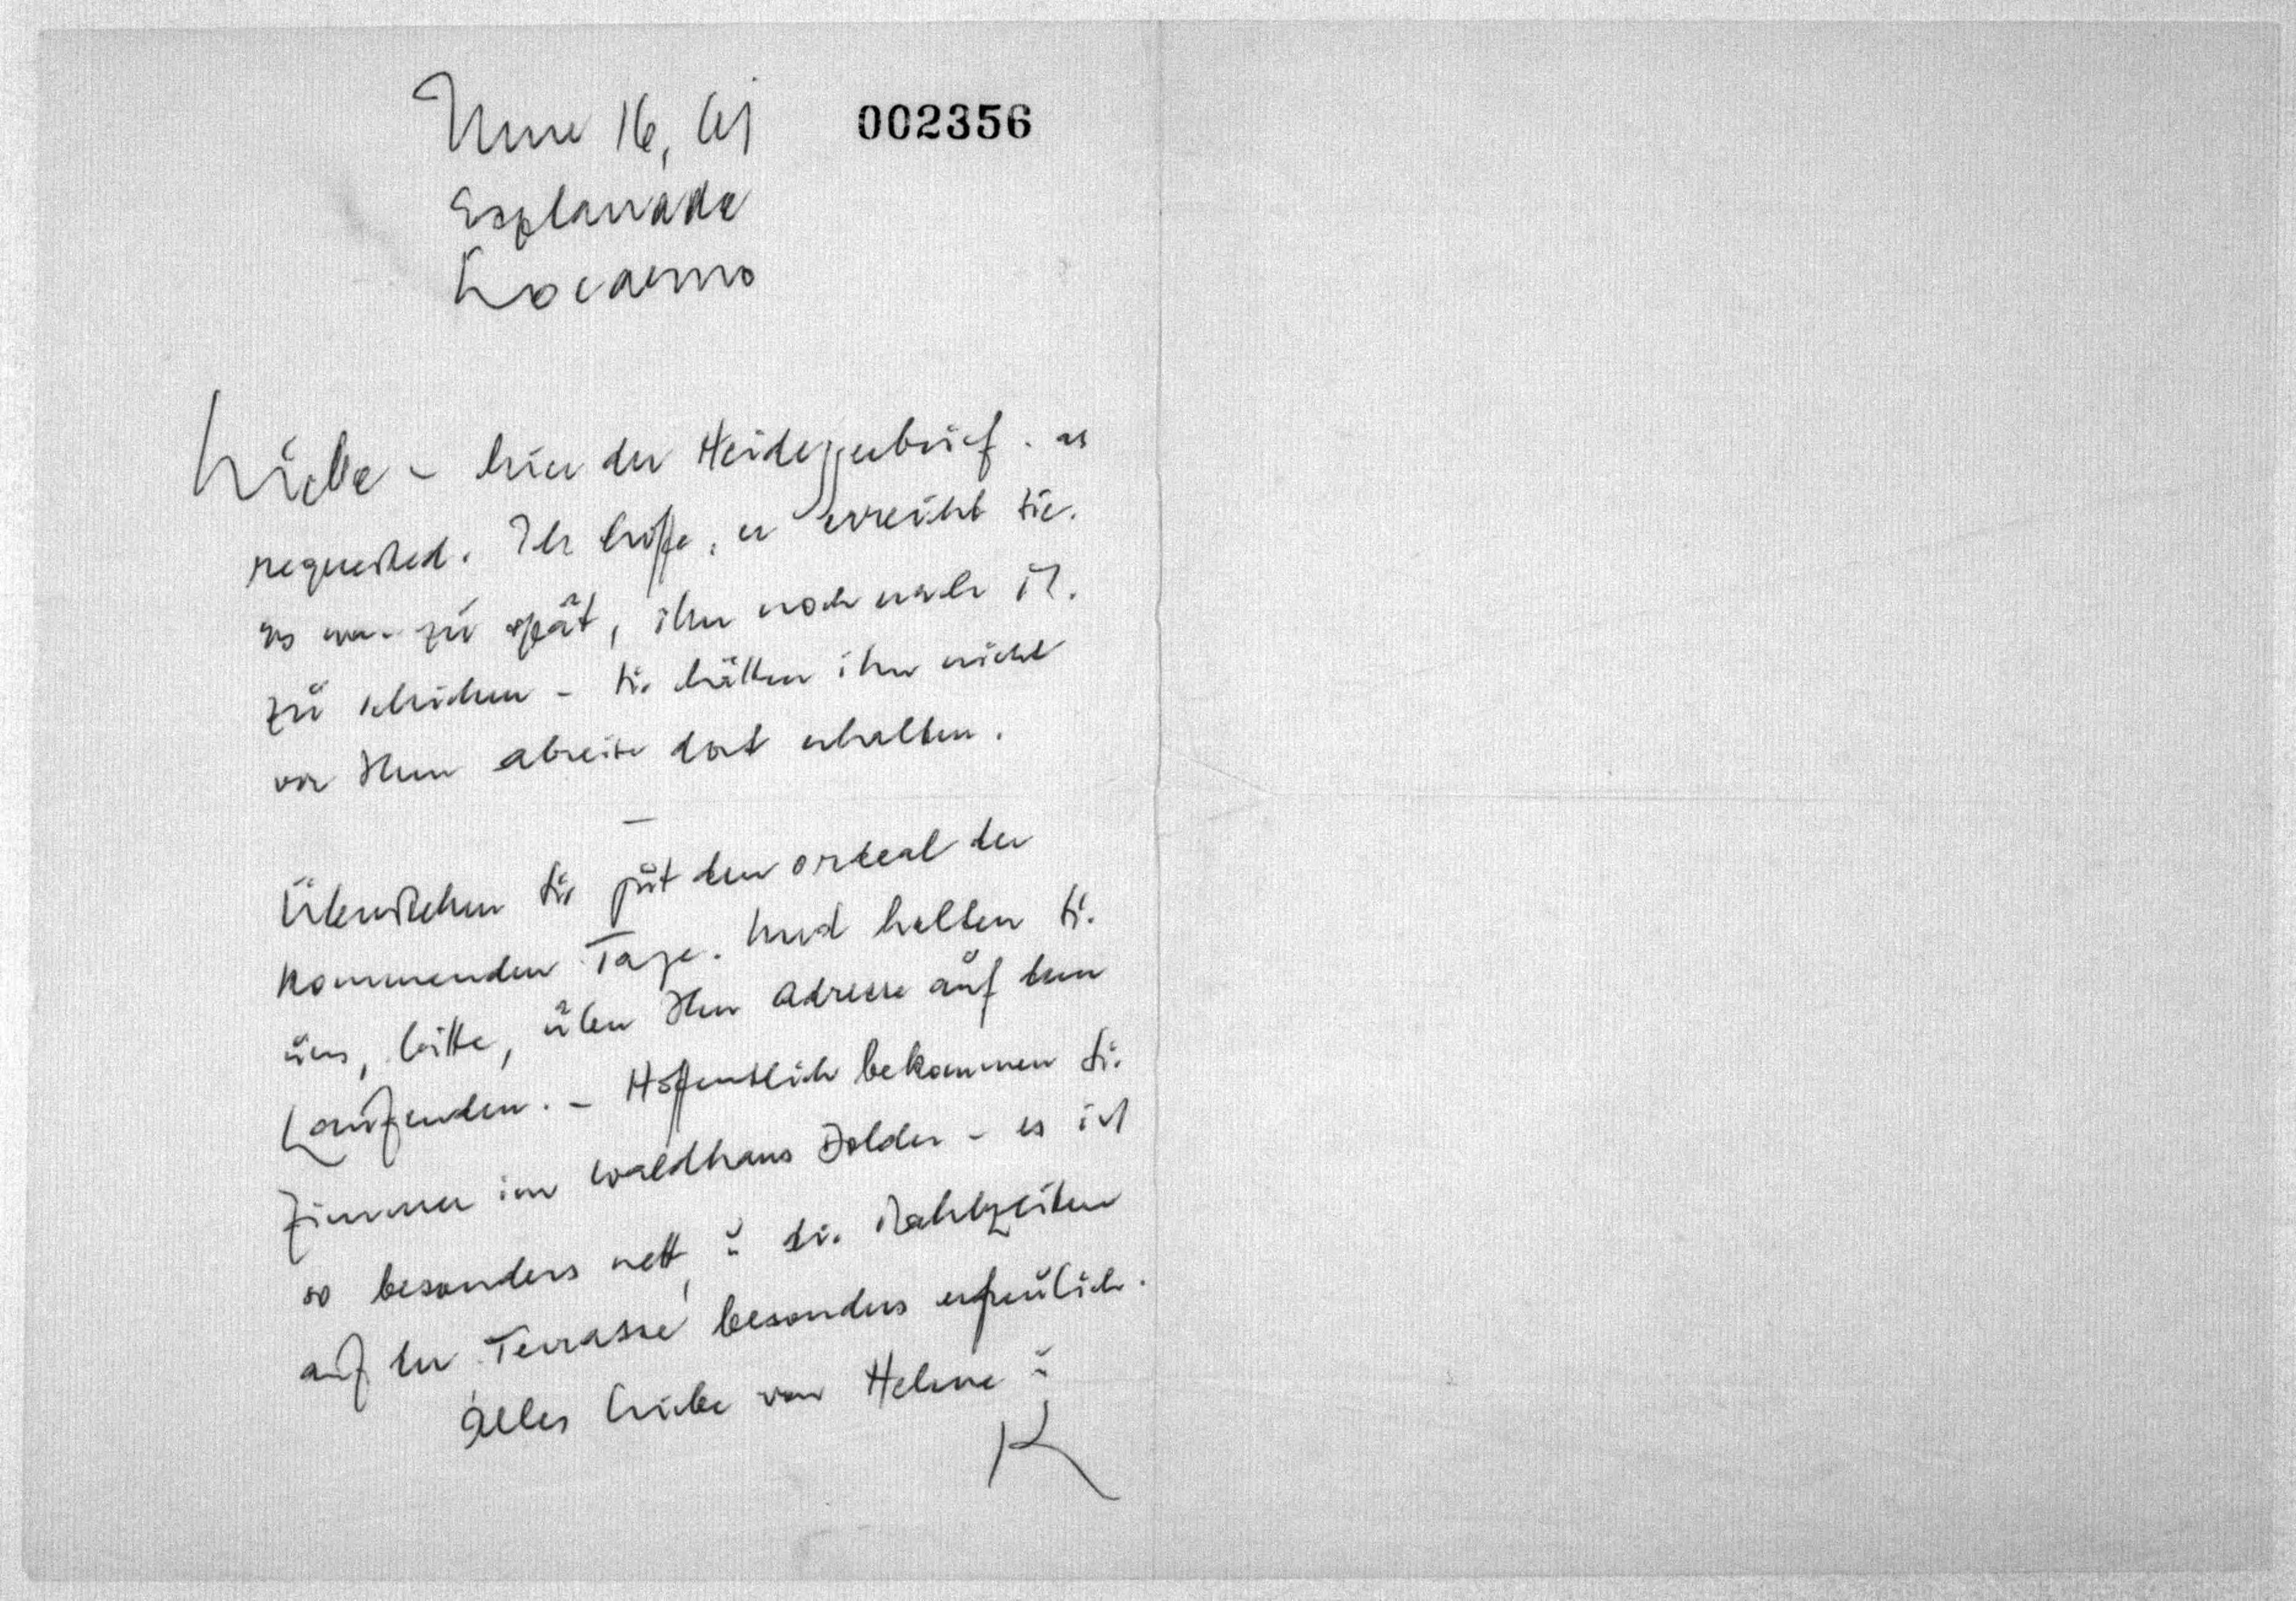 June 16, 61
002356
Esplanade
Locarno
Liebe – hier der Heideggerbrief. as
requested. Ich hoffe, er erreicht Sie.
Es war zu spät, ihn noch nach M.
zu schicken – Sie hätten ihn nicht
vor Ihrer Abreise dort erhalten.
—
Überstehen Sie gut den ordeal der
kommenden Tage. Und halten Sie
uns, bitte, über Ihre Adresse auf dem
Laufenden. – Hoffentlich bekommen Sie
Zimmer im Waldhaus Dolder – es ist
so besonders nett, u. die Mahlzeiten
auf der Terrasse besonders erfreulich.
Alles Liebe von Helene u.
K